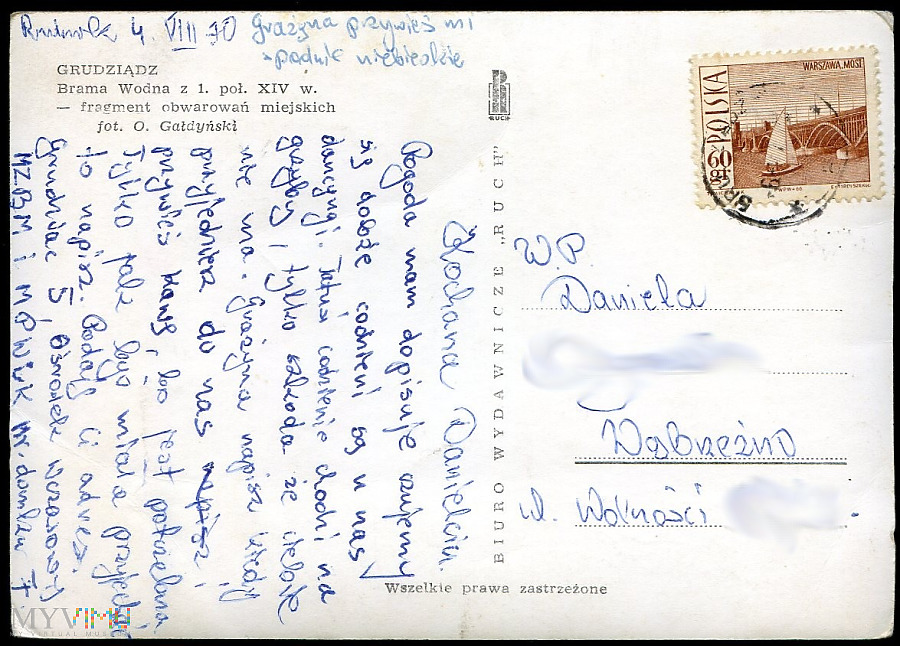 Rudnik 4 VIII 70 Grażyna przywieś mi
spodnie niebieskie
GRUDZIĄDZ
Brama Wodna z 1. poł. XIV w.
— fragment obwarowań miejskich
fot. O. Gałdyński
Kochana Danielciu.
Pogoda nam dopisuje czujemy
się dobże codzień są u nas
dancyngi. Tatuś codzienie chodzi na
grzyby, tylko szkoda że ciebie
nie ma. Grażyna napisz kiedy
przyjedziesz do nas napisz i
przywieś kawę, bo jest potrzebna
Tylko jak byś miała przyjechać
to napisz. Podaję Ci adres.
Grudziąc 5 Ośrodek Wczasowy
MZBM i MPWiK Nr. domku 7
BIURO WYDAWNICZE „RUCH"
RUCH
POLSKA
WARSZAWA, MOST
60 gr
W.P.
Daniela
Wąbrzeźno
ul. Wolności
Wszelkie prawa zastrzeżone
MYVIMU
VIRTUAL MUSEUM